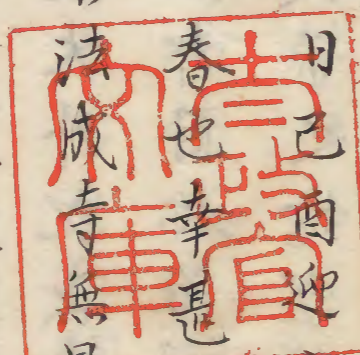 日己酉迎
春也幸甚
法成寺無
文庫